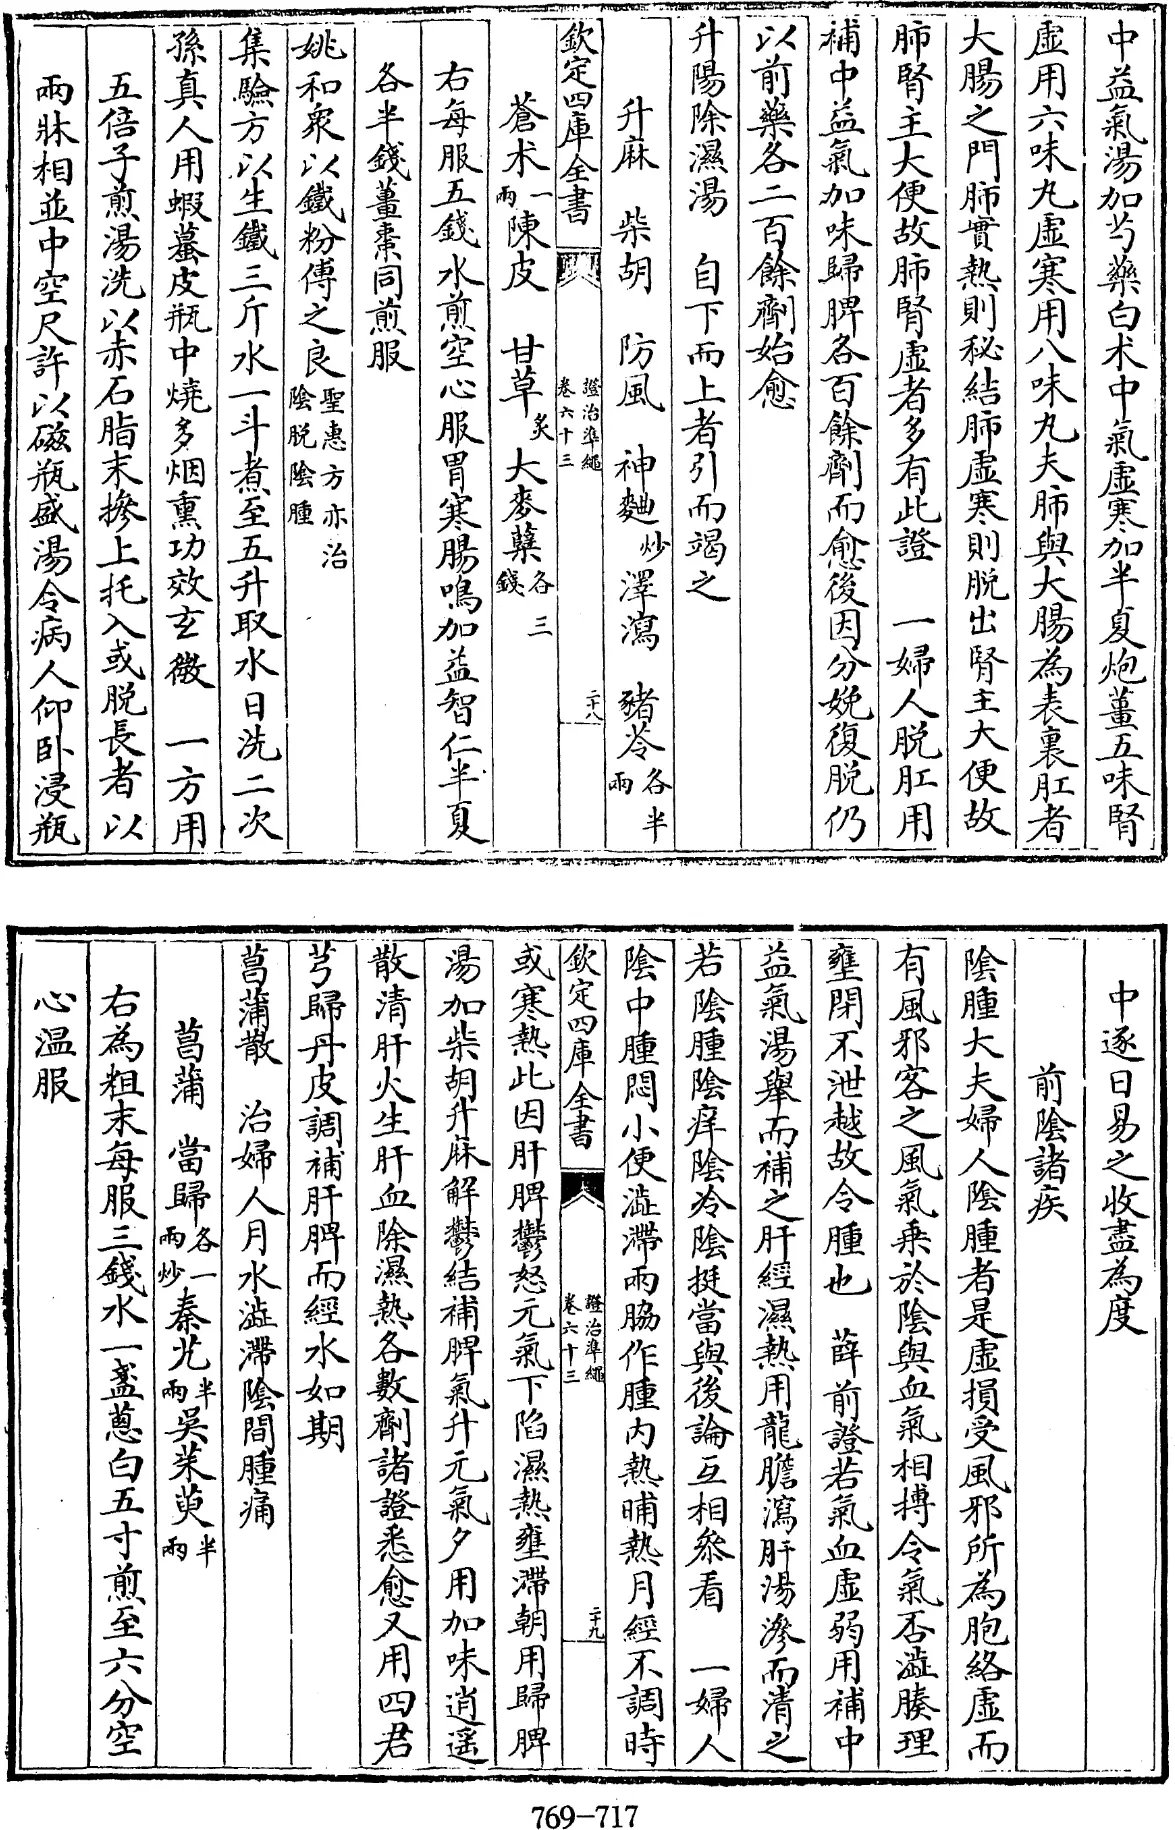 中益氣湯加芍藥白朮中氣虛寒加半夏炮薑五味腎
虛用六味丸虛寒用八味丸夫肺與大腸為表裏肛者
大腸之門肺實熱則秘結肺虛寒則脫出腎主大便故
肺腎主大便故肺腎虛者多有此證　一婦人脫肛用
補中益氣加味歸脾各百餘劑而愈後因分娩復脫仍
以前藥各二百餘劑始愈
升陽除濕湯　自下而上者引而竭之
升麻　柴胡　防風　神麯炒　澤瀉　豬苓各半兩
欽定四庫全書
證治準繩
卷六十三
二十八
蒼术一兩　陳皮　甘草炙　大麥蘖各三錢
右每服五錢水煎空心服胃寒腸鳴加益智仁半夏
各半錢薑棗同煎服
姚和衆以鐵粉傅之良聖惠方亦治陰脫陰腫
集驗方以生鐵三斤水一斗煮至五升取水日洗二次
孫真人用蝦蟇皮瓶中燒多烟熏功效玄微　一方用
五倍子煎湯洗以赤石脂末摻上托入或脫長者以
兩牀相並中空尺許以磁瓶盛湯令病人仰卧浸瓶
中逐日易之收盡為度
前陰諸疾
陰腫大夫婦人陰腫者是虛損受風邪所為胞絡虛而
有風邪客之風氣乘於陰與血氣相搏令氣否澁腠理
壅閉不泄越故令腫也　薛前證若氣血虛弱用補中
益氣湯舉而補之肝經濕熱用龍膽瀉肝湯滲而清之
若陰腫陰痒陰冷陰挺當與後論互相叅看　一婦人
陰中腫悶小便澁滯兩脇作腫內熱晡熱月經不調時
欽定四庫全書
證治準繩
卷六十三
二十九
或寒熱此因肝脾鬱怒元氣下陷濕熱壅滯朝用歸脾
湯加柴胡升麻解鬱結補脾氣升元氣夕用加味逍遥
散清肝火生肝血除濕熱各數劑諸證悉愈又用四君
芎歸丹皮調補肝脾而經水如期
菖蒲散　治婦人月水澁滯陰間腫痛
菖蒲　當歸各一兩炒　秦艽半兩　吳茱萸半兩
右為粗末每服三錢水一盞蔥白五寸煎至六分空
心温服
769-717